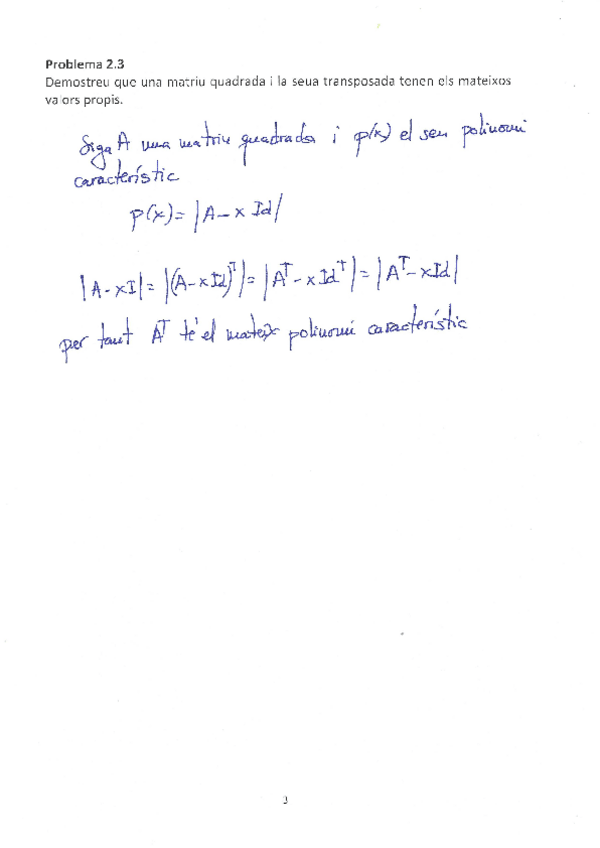 Problema 2.3
Demostreu que una matriu quadrada i la seua transposada tenen els mateixos
valors propis.
Siga A una matriu quadrada i p(x) el seu polinomi
característic
p(x) = |A - x Id|
|A - xI| = |(A - xId)^T| = |A^T - x Id^T| = |A^T - xId|
per tant A^T té el mateix polinomi característic
3